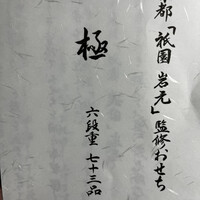 都「祇園 岩元」監修おせち
極
六段重 七十三品